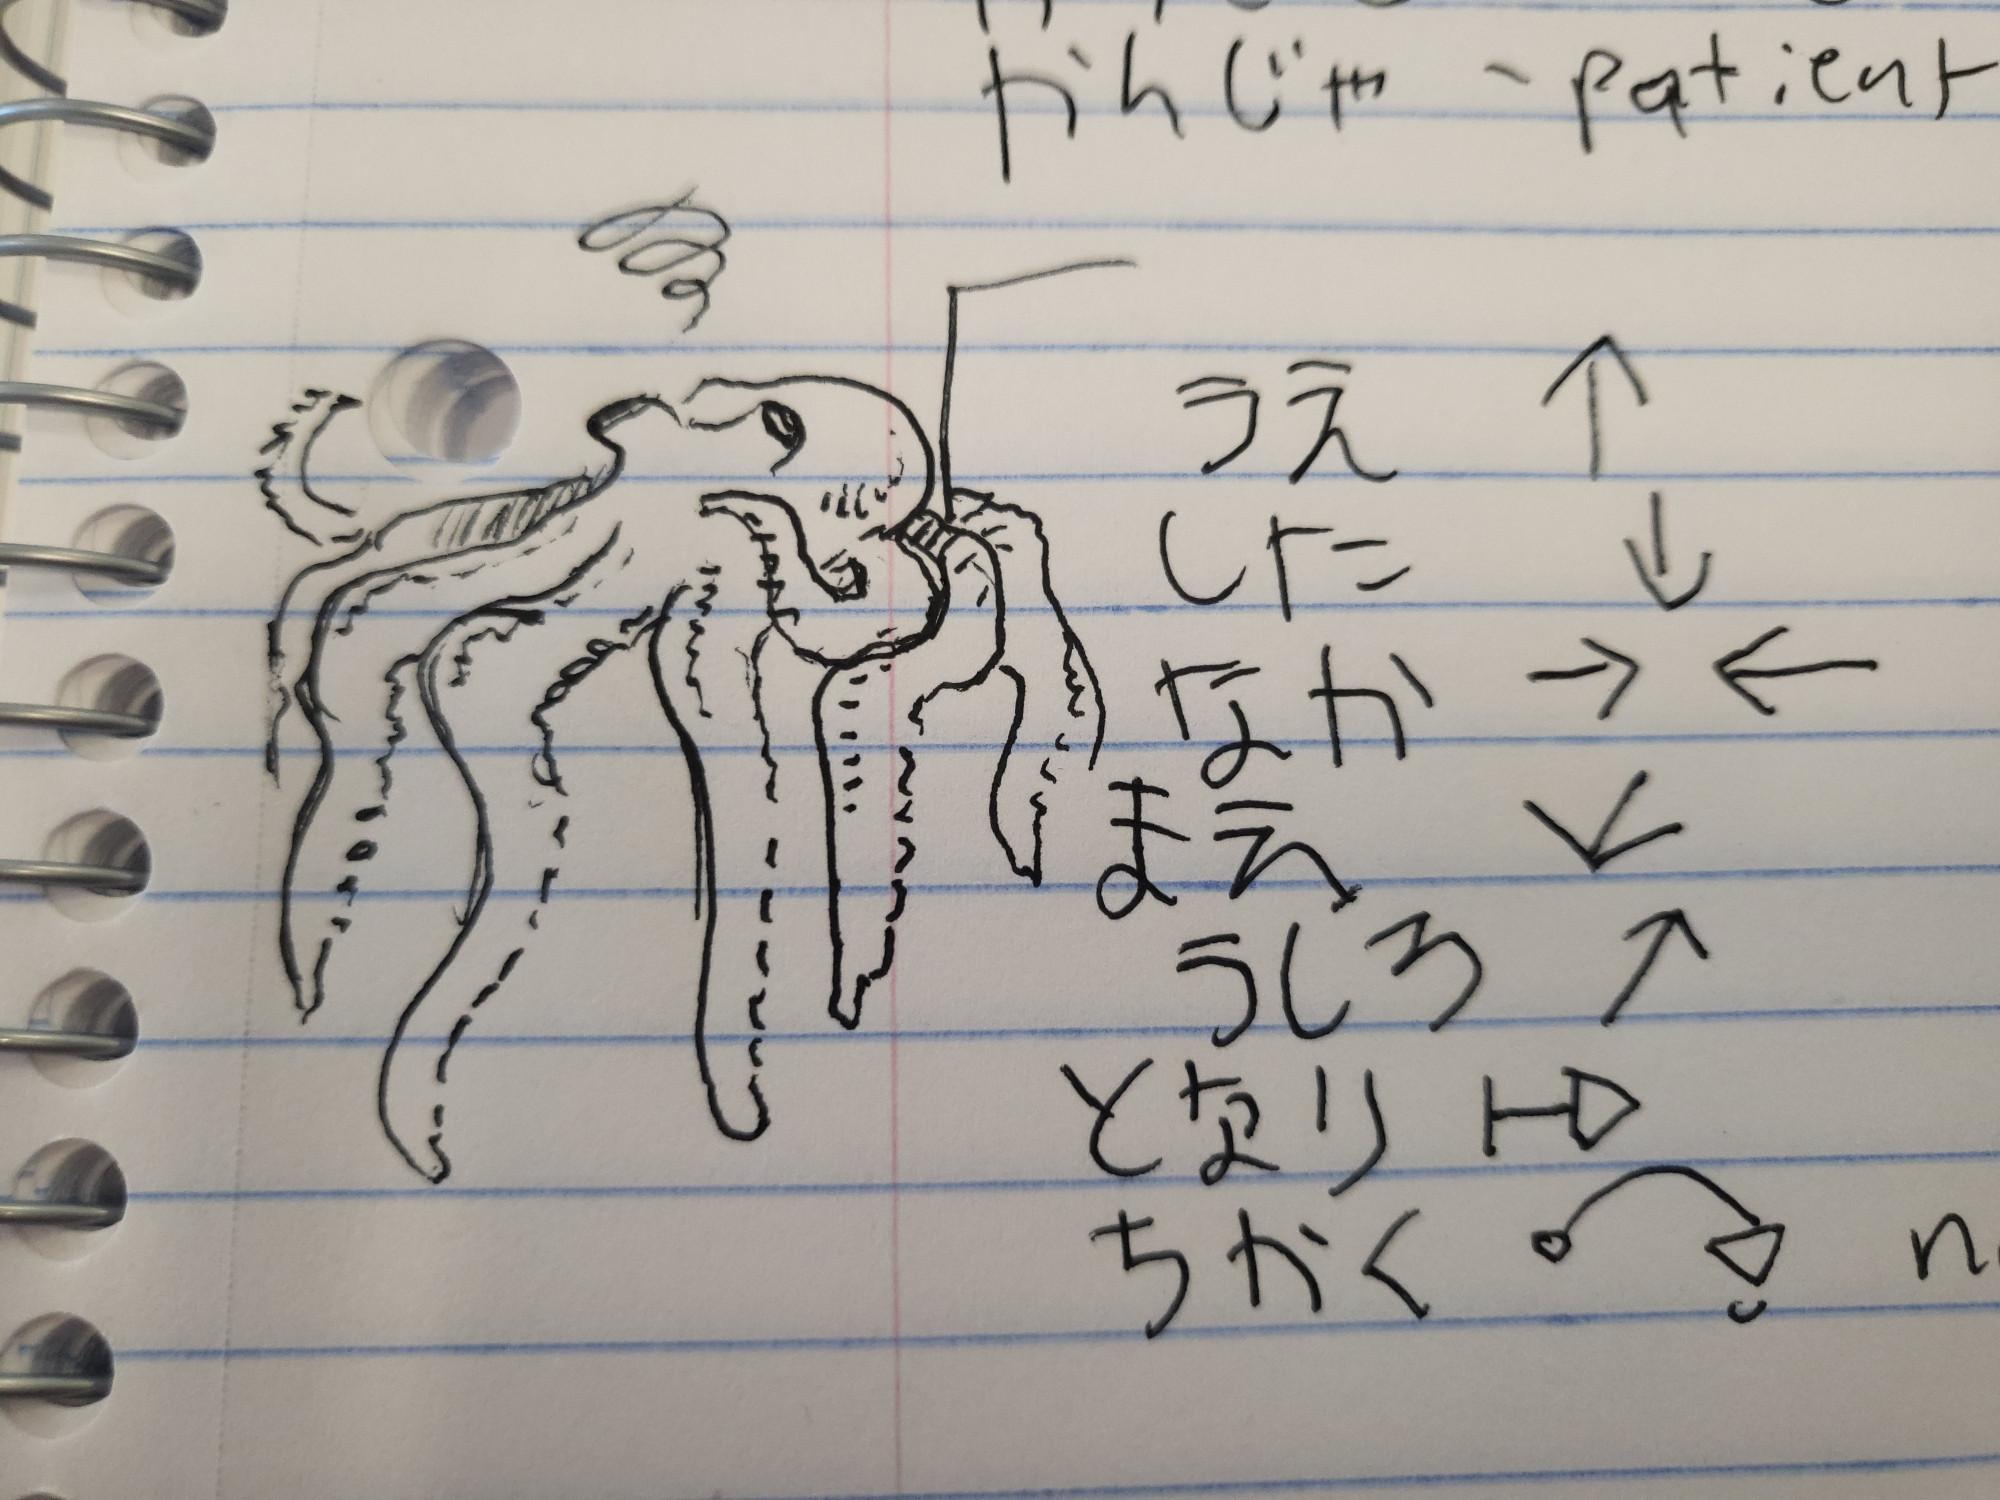 かんじゃ - patient
うえ ↑
した ↓
なか → ←
まえ ↙
うしろ ↗
となり
ちかく